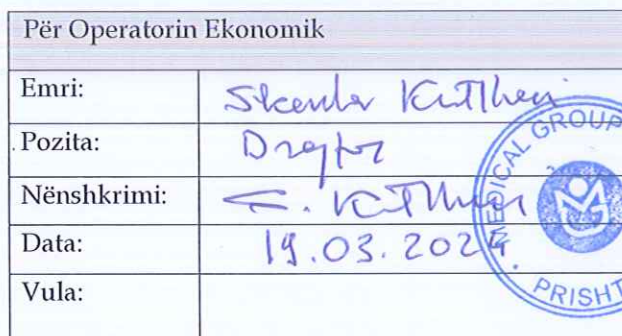 Për Operatorin Ekonomik
Emri: Skender
Pozita: Drejtor
Nënshkrimi:
Data: 19.03.2024
Vula:
MEDICAL GROUP
PRISHT